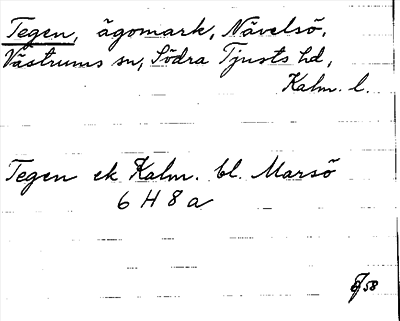 Tegen, ägomark, Nävelsö,
Västrums sn, Södra Tjusts hd,
Kalm. l.
Tegen ek Kalm. bl. Marsö
6 H 8 a
58